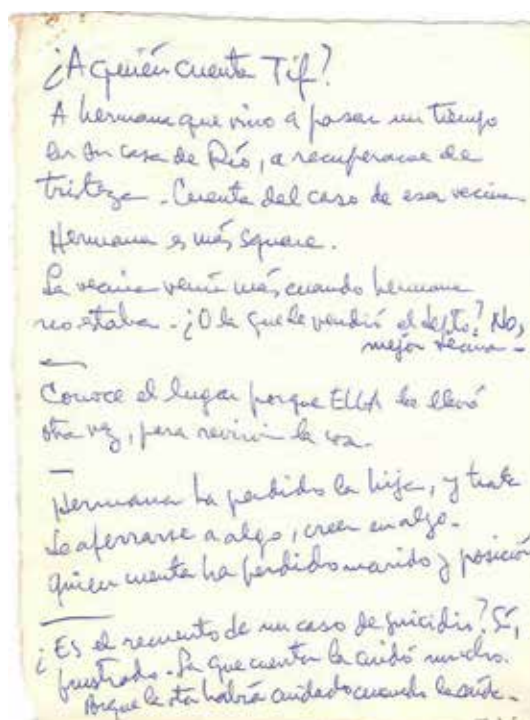 ¿A quién cuenta Tif?
A hermana que vino a pasar un tiempo
en su casa de Río, a recuperarse de
tristeza. Cuenta del caso de esa vecina
Hermana es más square.
La vecina venía más cuando hermana
no estaba. ¿O la que le vendió el depto? No,
mejor vecina.
Conoce el lugar porque ELLA la llevó
otra vez, para revivir la cosa.
Hermana ha perdido la hija, y trata
de aferrarse a algo, creer en algo.
Quien cuenta ha perdido marido y posición
¿Es el recuento de un caso de suicidio? Sí,
frustrado. La que cuenta la cuidó mucho.
Porque la otra habrá cuidado cuando la